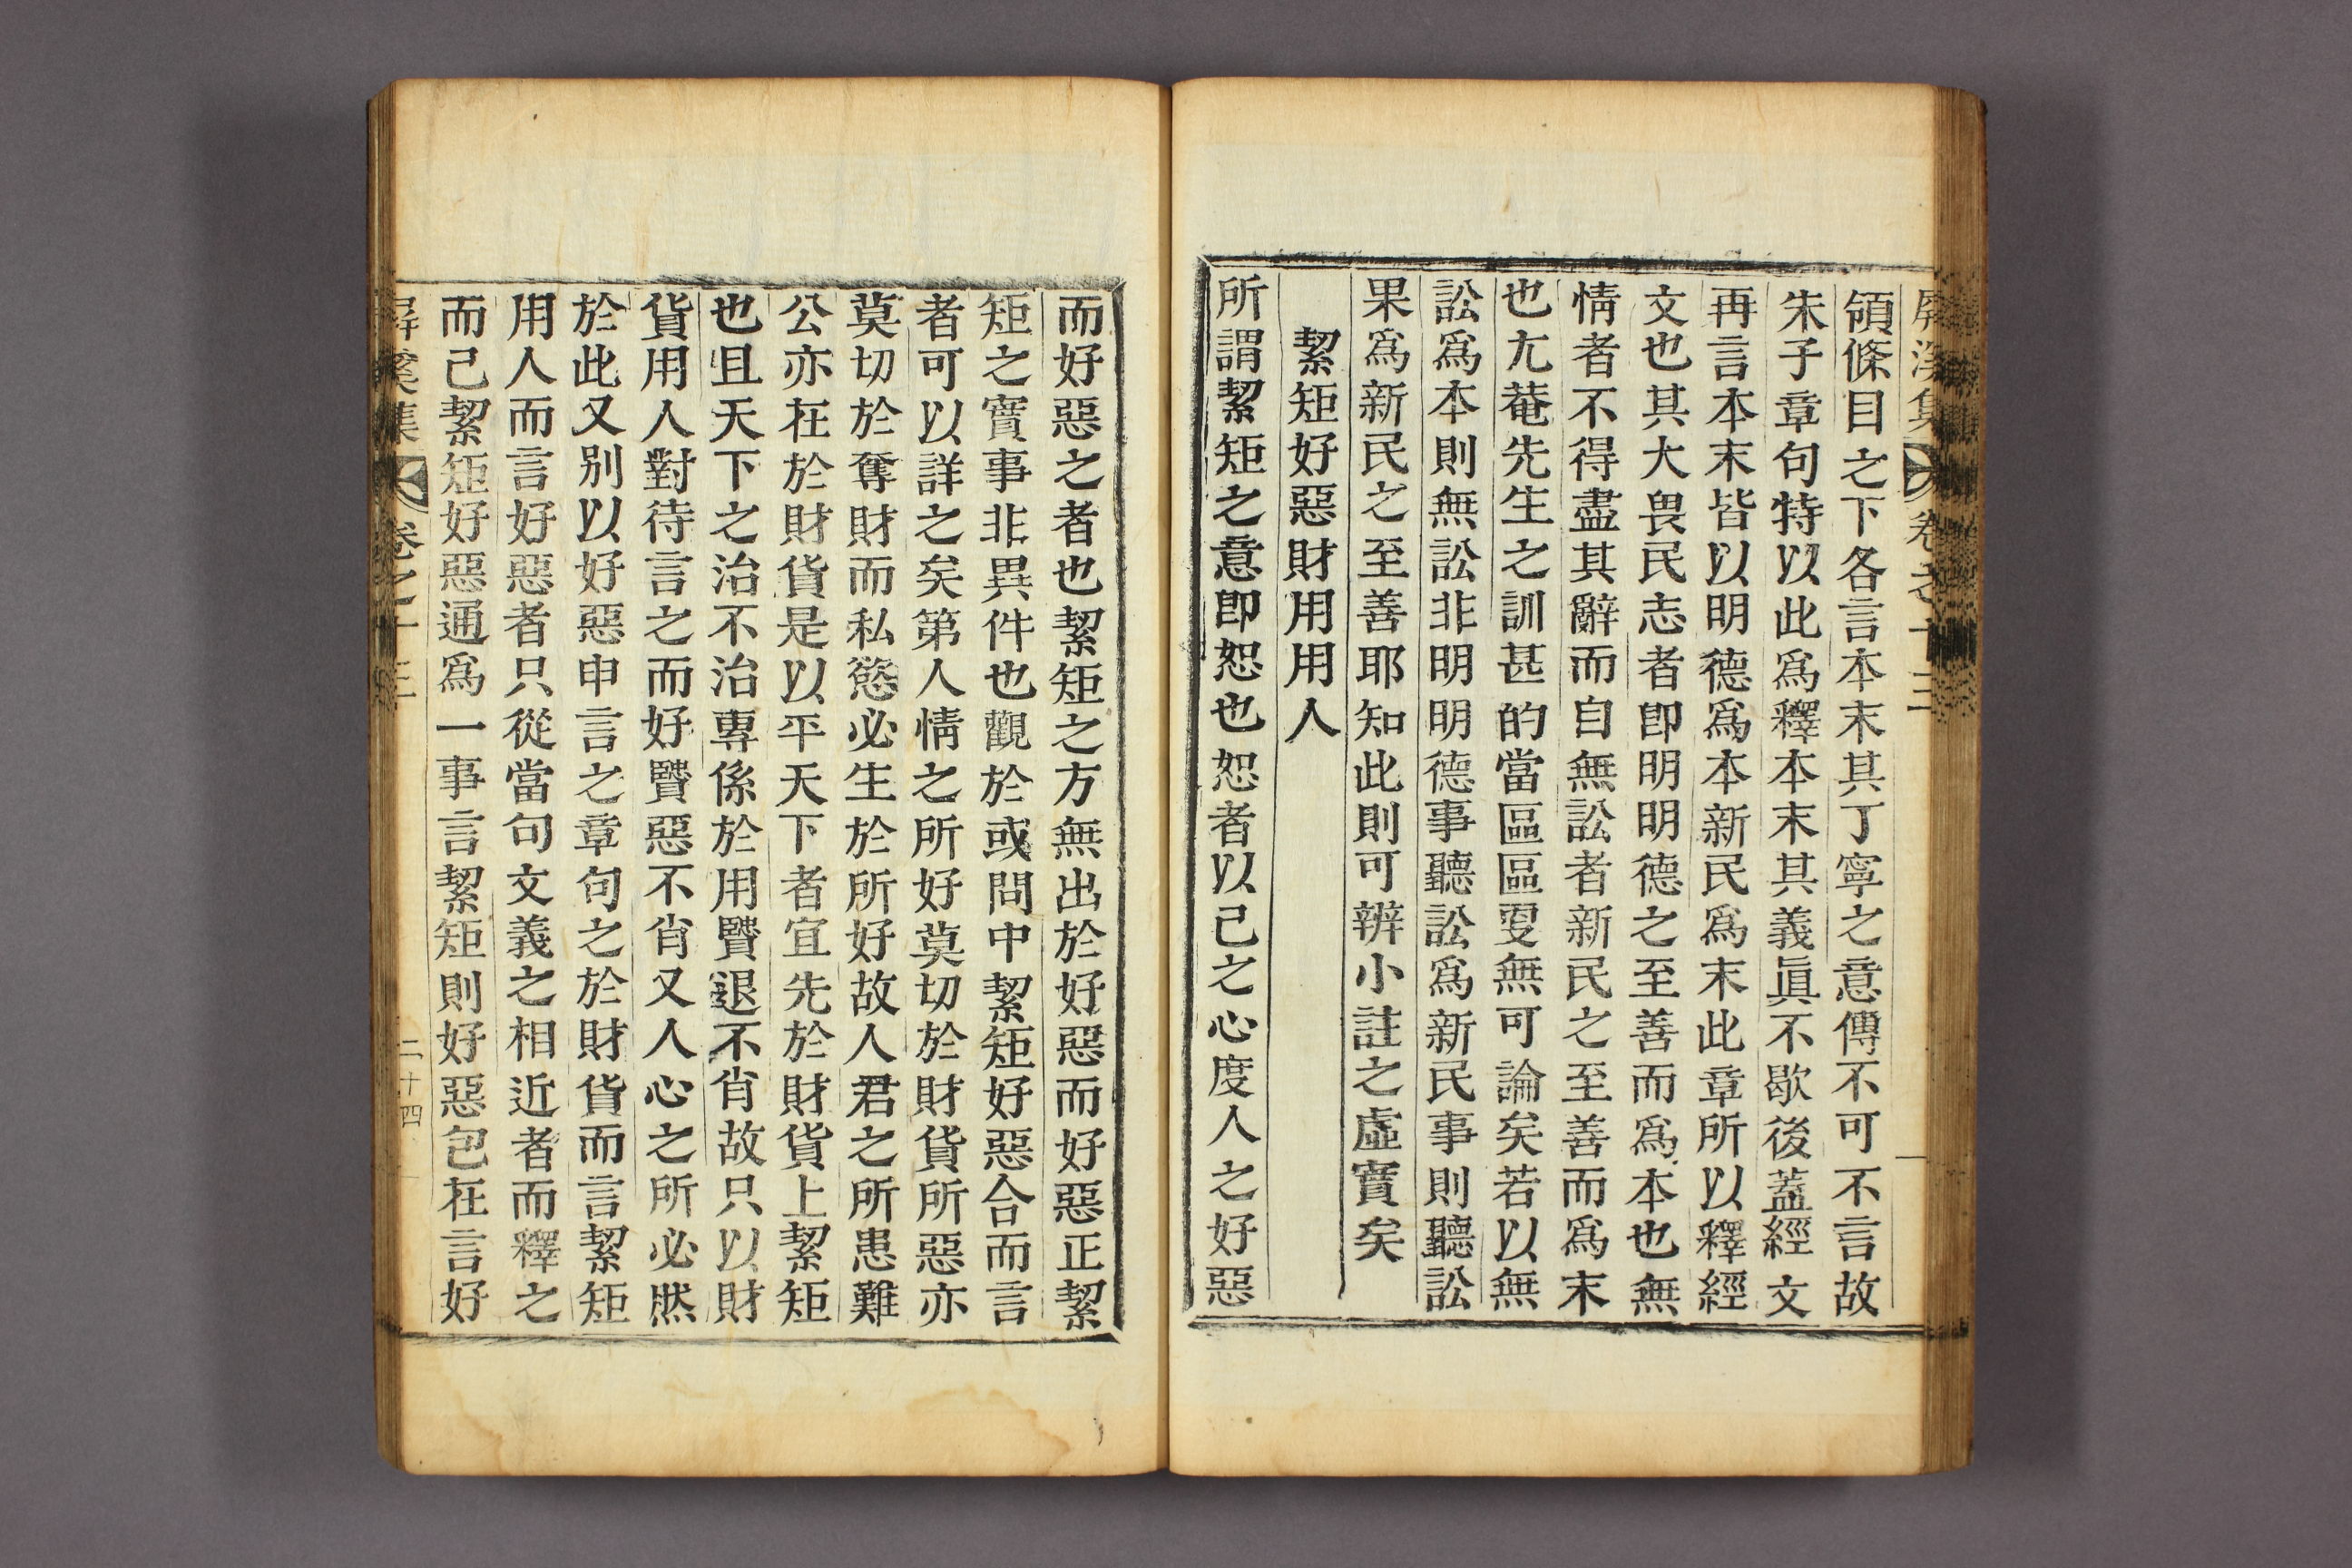 屛溪集 卷之十三
領條目之下各言本末其丁寧之意傳不可不言故
朱子章句特以此爲釋本末其義眞不歇後蓋經文
再言本末皆以明德爲本新民爲末此章所以釋經
文也其大畏民志者卽明明德之至善而爲本也無
情者不得盡其辭而自無訟者新民之至善而爲末
也尢菴先生之訓甚的當區區更無可論矣若以無
訟爲本則無訟非明明德事聽訟爲新民事則聽訟
果爲新民之至善耶知此則可辨小註之虛實矣
絜矩好惡財用用人
所謂絜矩之意卽恕也恕者以己之心度人之好惡
而好惡之者也絜矩之方無出於好惡而好惡正絜
矩之實事非異件也觀於或問中絜矩好惡合而言
者可以詳之矣第人情之所好莫切於財貨所惡亦
莫切於奪財而私慾必生於所好故人君之所患難
公亦在於財貨是以平天下者宜先於財貨上絜矩
也且天下之治不治專係於用賢退不肖故只以財
貨用人對待言之而好賢惡不肖又人心之所必然
於此又別以好惡申言之章句之於財貨而言絜矩
用人而言好惡者只從當句文義之相近者而釋之
而已絜矩好惡通爲一事言絜矩則好惡包在言好
屛溪集 卷之十三 二十四